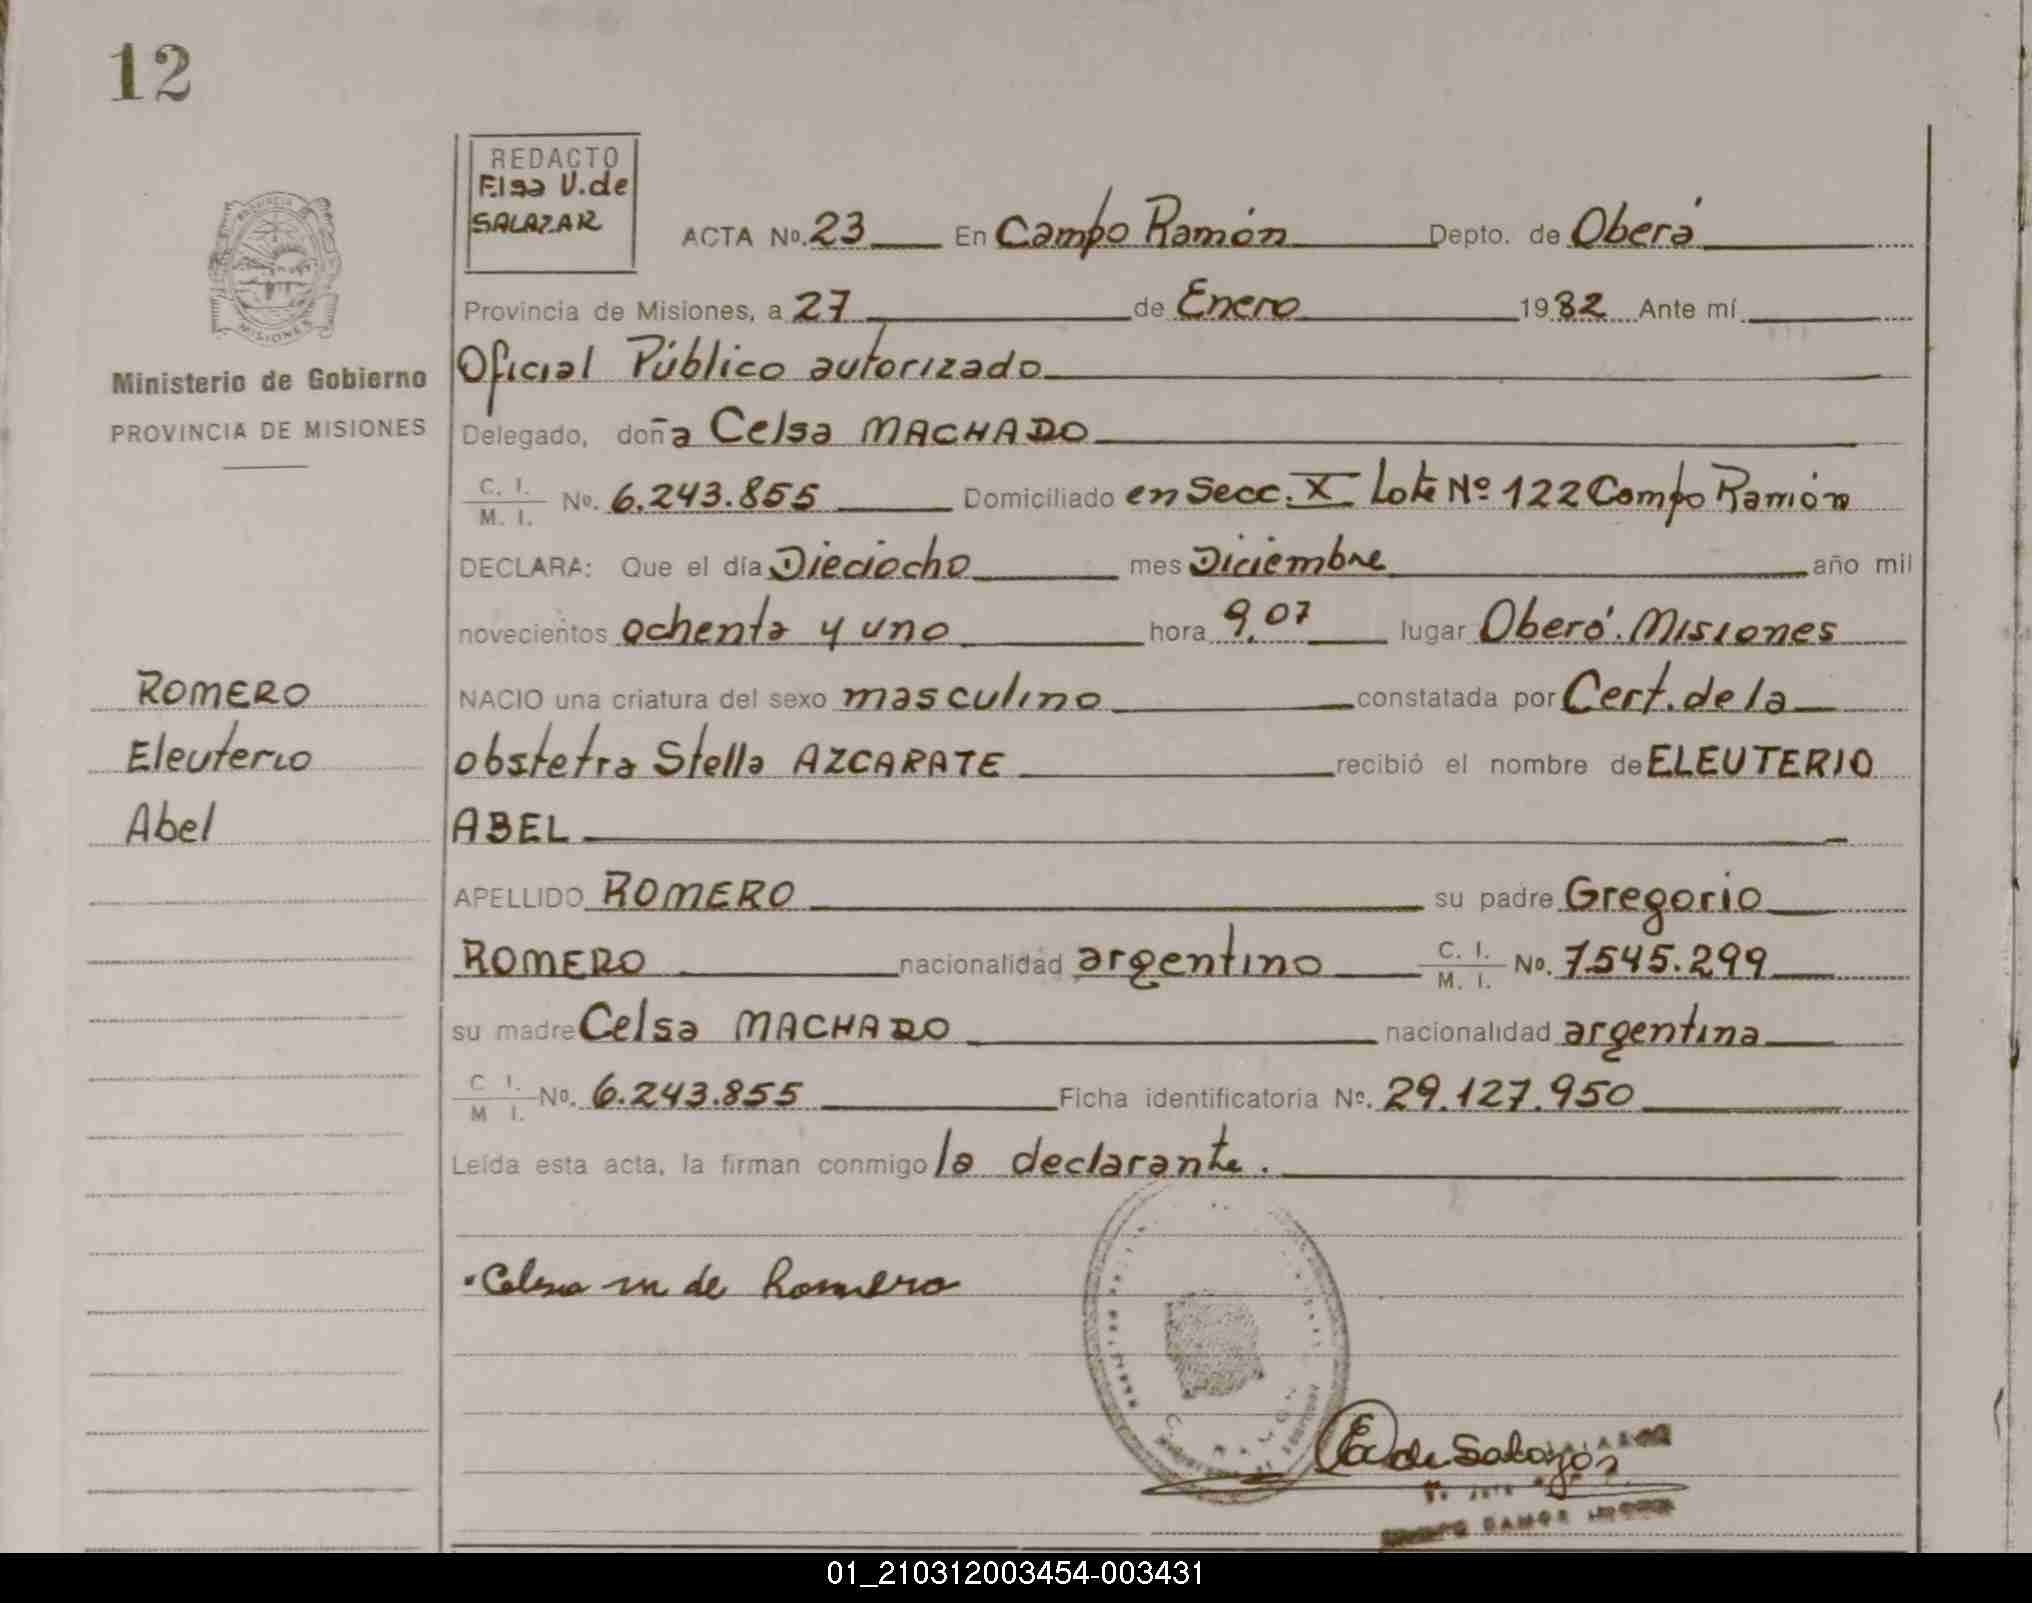 12
REDACTO
Elsa V. de
SALAZAR
PROVINCIA
MISIONES
Ministerio de Gobierno
PROVINCIA DE MISIONES
ACTA No. 23 En Campo Ramón Depto. de Oberá
Provincia de Misiones, a 27 de Enero 1982 Ante mí
Oficial Público autorizado
Delegado, doña Celsa MACHADO
C. I. / M. I. No. 6.243.855 Domiciliado en Secc. X Lote Nº 122 Campo Ramón
DECLARA: Que el día Dieciocho mes Diciembre año mil
novecientos ochenta y uno hora 9,07 lugar Oberá. Misiones
ROMERO
Eleuterio
Abel
NACIO una criatura del sexo masculino constatada por Cert. de la
obstetra Stella AZCARATE recibió el nombre de ELEUTERIO
ABEL
APELLIDO ROMERO su padre Gregorio
ROMERO nacionalidad argentino C. I. / M. I. No. 7.545.299
su madre Celsa MACHADO nacionalidad argentina
C I. / M I. No. 6.243.855 Ficha identificatoria No. 29.127.950
Leída esta acta, la firman conmigo la declarante.
Celsa m de Romero
de Salazar
CAMPO RAMON
01_210312003454-003431